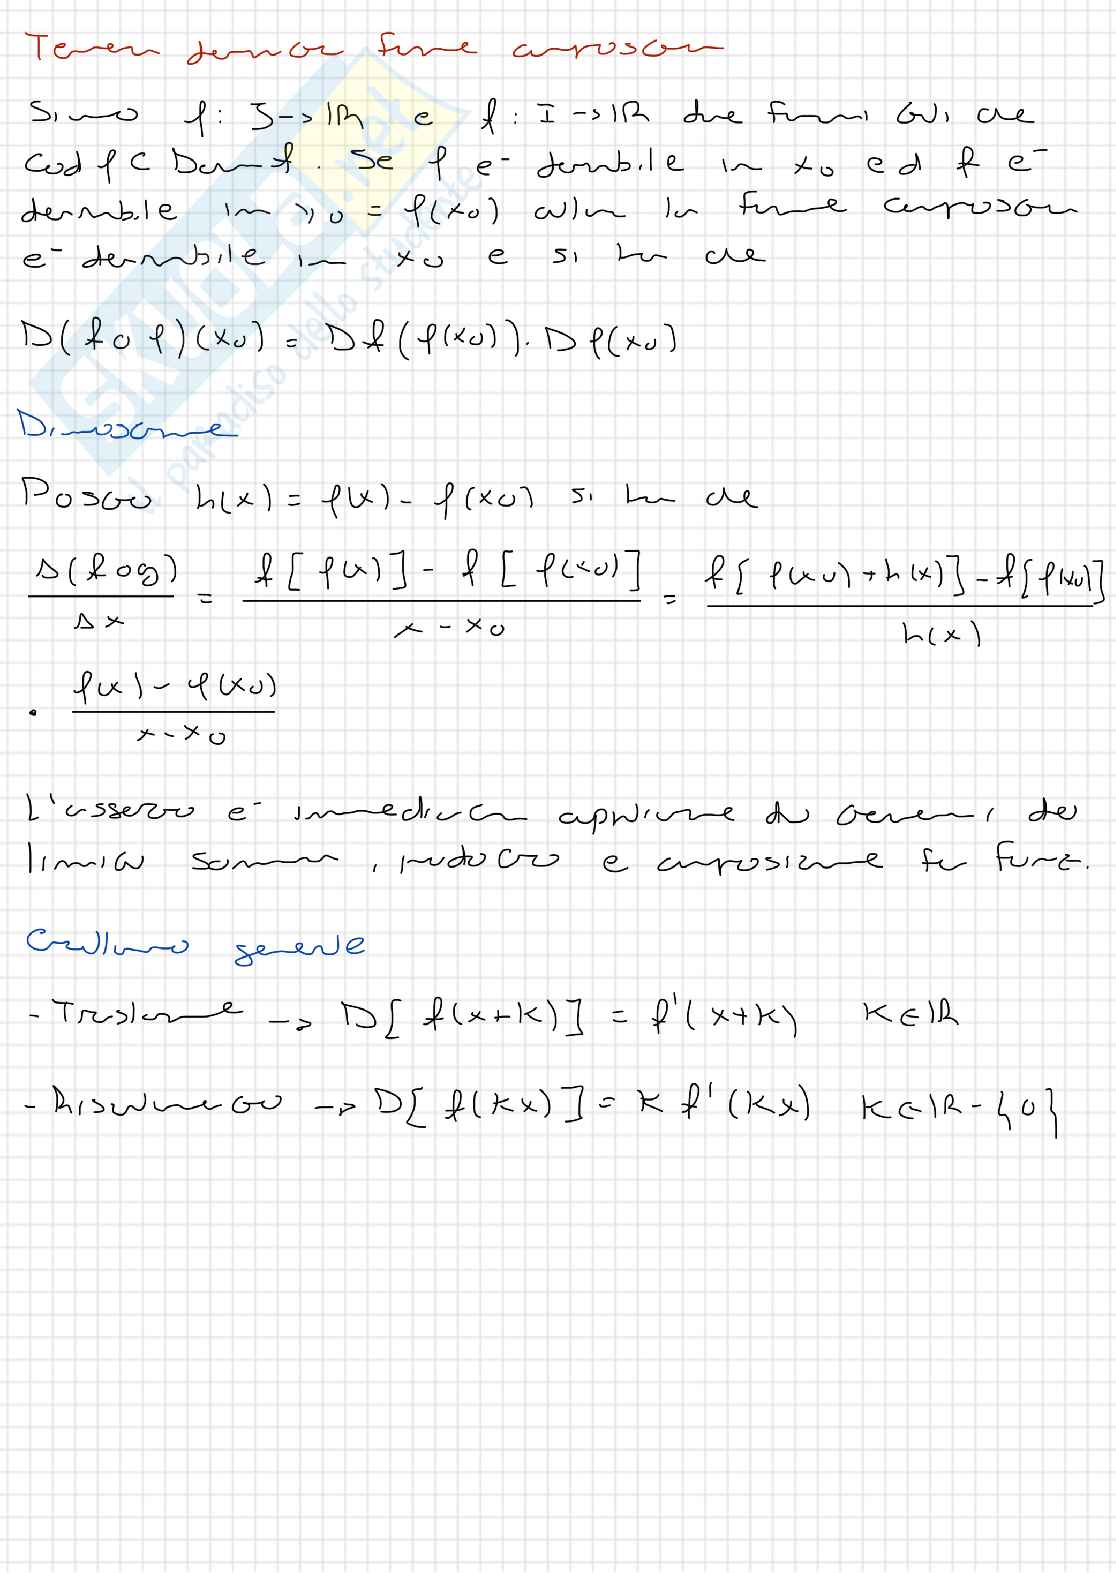 Teorema derivazione funzione composta
Siano φ: J → ℝ e f: I → ℝ due funzioni tali che
Cod φ ⊂ Dom f. Se φ e' derivabile in x0 ed f e'
derivabile in y0 = φ(x0) allora la funzione composta
e' derivabile in x0 e si ha che
D(f o φ)(x0) = Df(φ(x0)) · Dφ(x0)
Dimostrazione
Posto h(x) = φ(x) - φ(x0) si ha che
Δ(f o g) / Δx = f[φ(x)] - f[φ(x0)] / x - x0 = f[φ(x0) + h(x)] - f[φ(x0)] / h(x)
· φ(x) - φ(x0) / x - x0
L'asserto e' immediata applicazione dei teoremi dei
limiti somma, prodotto e composizione funz.
Corollario generale
- Traslazione → D[f(x+k)] = f'(x+k) k∈ℝ
- Riscalamento → D[f(kx)] = k f'(kx) k∈ℝ-{0}
SKUOLA.net
il paradiso dello studente